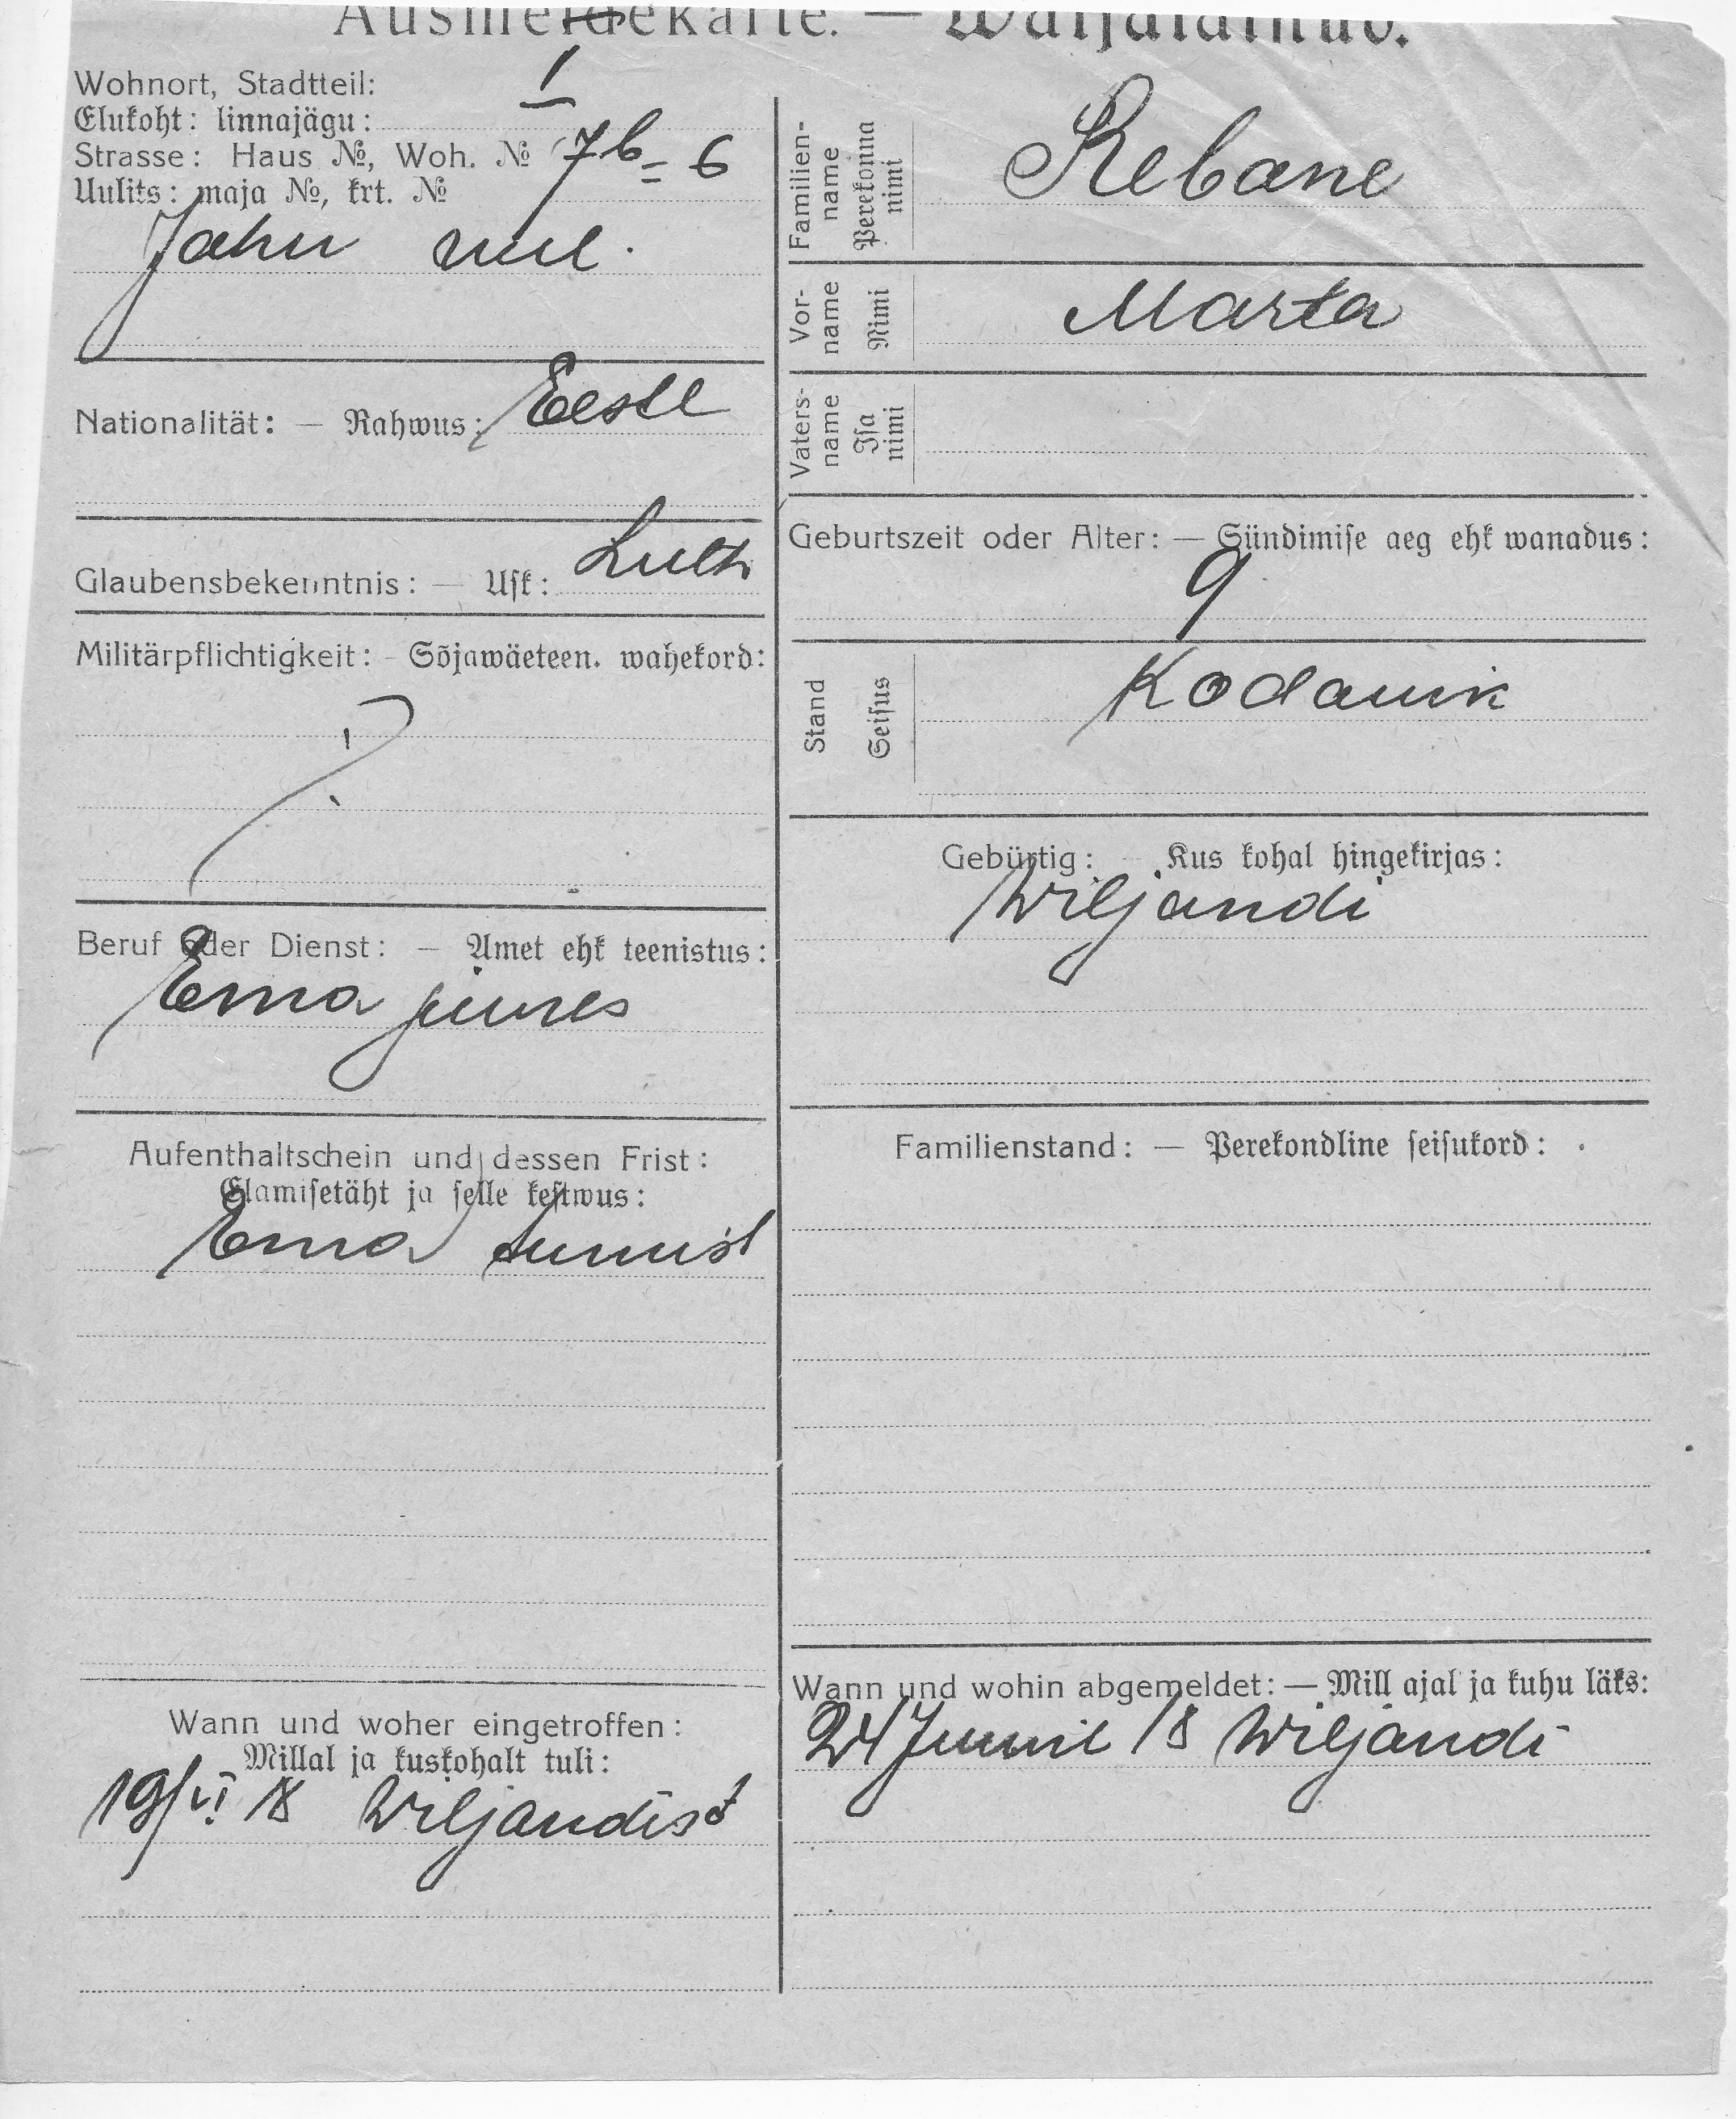 Ausmeldekarte. — Wäljaläinud.
Wohnort, Stadtteil:
Elukoht: linnajägu: I
Strasse: Haus №, Woh. № 7b - 6
Uulits: maja №, krt. №
Jahu uul.
Nationalität: — Rahwus: Eestl
Glaubensbekenntnis: — Usk: Luth
Militärpflichtigkeit: - Sõjawäeteen. wahekord:
Beruf oder Dienst: — Amet ehk teenistus:
Ema juures
Aufenthaltschein und dessen Frist:
Elamisetäht ja selle kestwus:
Ema
Wann und woher eingetroffen:
Millal ja kuskohalt tuli:
19/VI 18 Wiljandist
Familien-name
Perekonna nimi
Rebane
Vor-name
Nimi
Marta
Vaters-name
Isa nimi
Geburtszeit oder Alter: — Sündimise aeg ehk wanadus:
9
Stand
Seisus
Kodanik
Gebürtig: — Kus kohal hingekirjas:
Wiljandi
Familienstand: — Perekondline seisukord:
Wann und wohin abgemeldet: — Mill ajal ja kuhu läks:
24 Juunil 18 Wiljandi